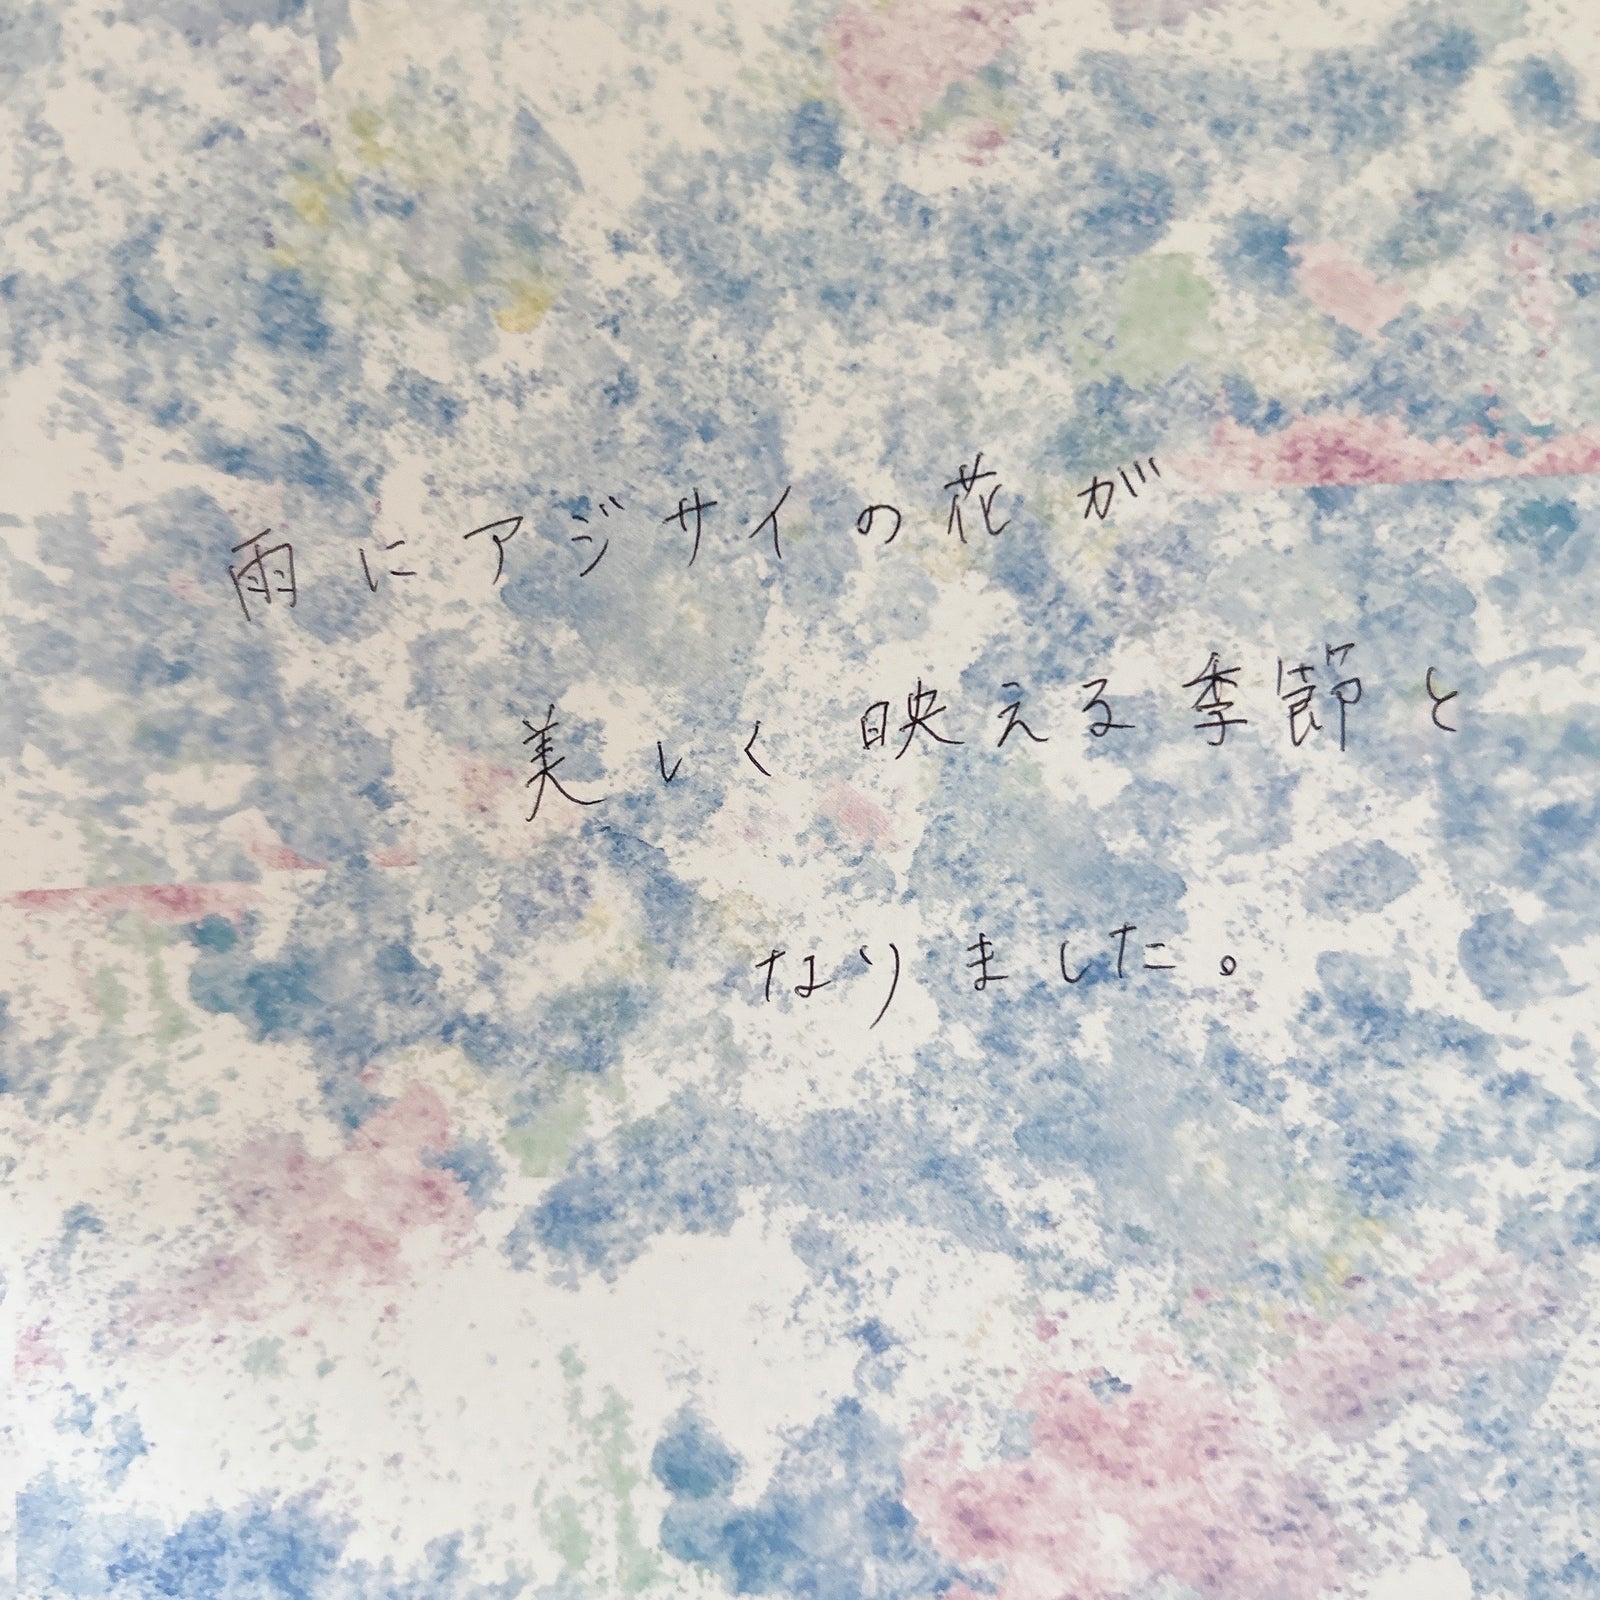 雨にアジサイの花が
美しく映える季節と
なりました。